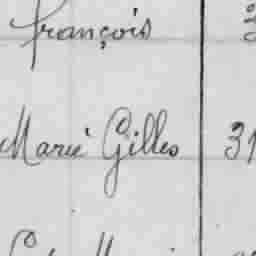 françois
Marie Gilles 31